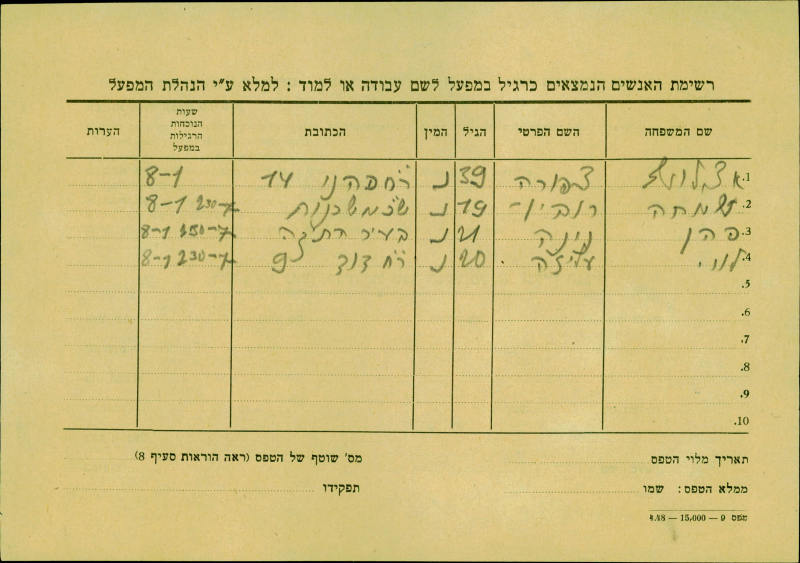 רשימת האנשים הנמצאים כרגיל במפעל לשם עבודה או למוד : למלא ע״י הנהלת המפעל
שם המשפחה השם הפרטי הגיל המין הכתובת שעות הנוכחות הרגילות במפעל הערות
1. צפורה 39 נ 14 8-1
2. שמחה רובין 19 נ שכ משכנות 8-1 230-7
3. כהן נינה 21 נ 8-1 230-7
4. לוי עליזה 20 נ רח דוד 9 8-1 230-7
5.
6.
7.
8.
9.
10.
תאריך מלוי הטפס מס' שוטף של הטפס (ראה הוראות סעיף 8)
ממלא הטפס: שמו תפקידו
טפס 9 — 15,000 — 4.48